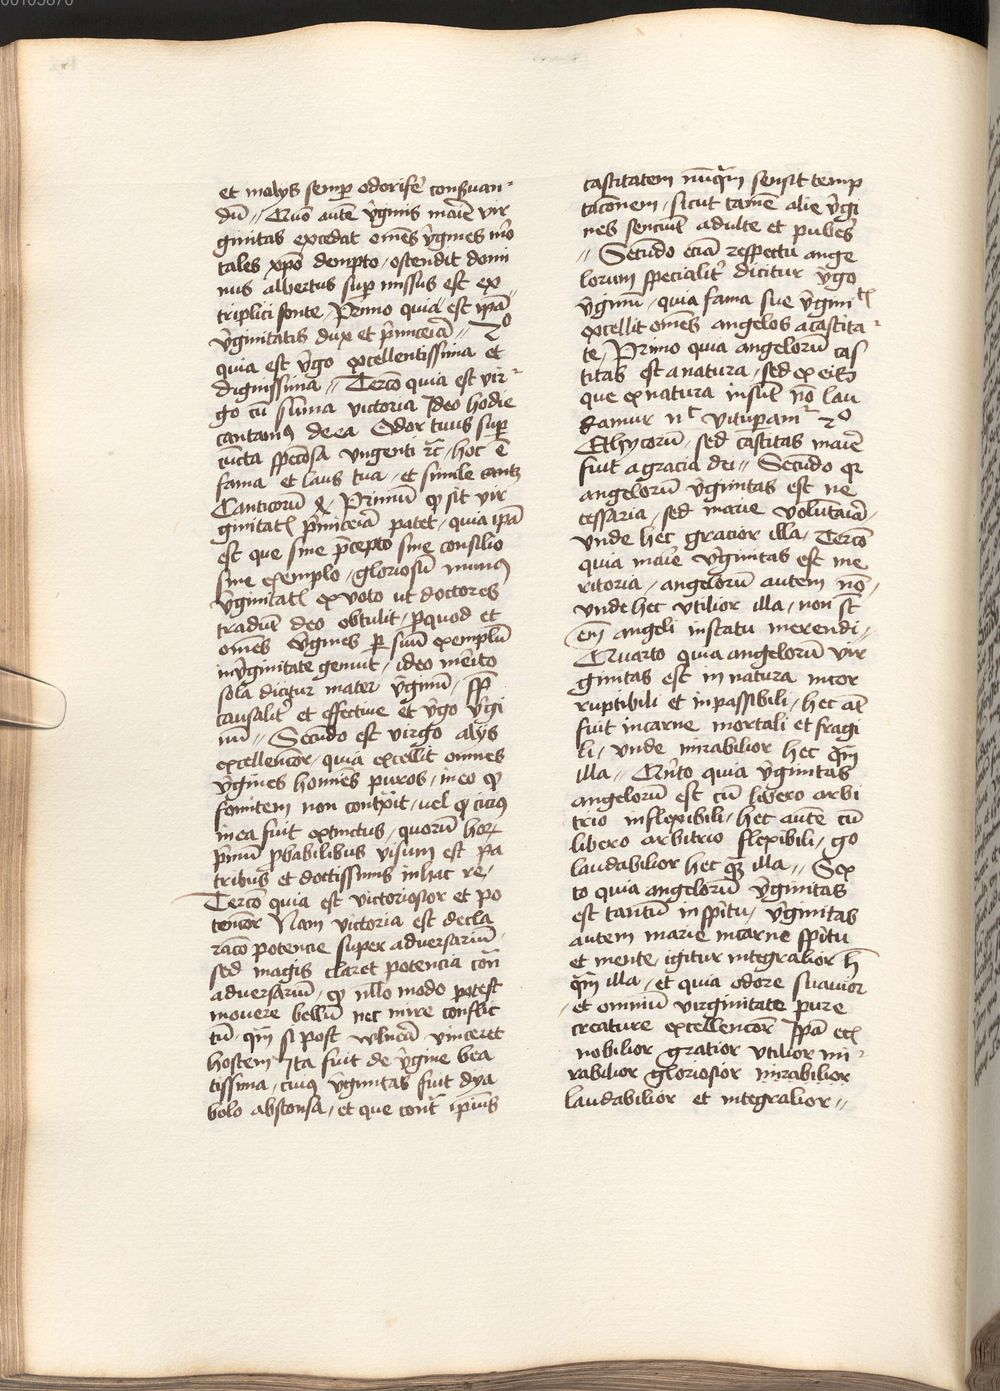 et malys semp̄ odorife᷑ conseruan⸗
dū // Quō autē v̓ginis marie vir
ginitas excedat om̄es v̓gines mor
tales xpō dempto / ostendit domi
nus albertus sup̄ missus est ex
triplici fonte / Primo quia est ip̄a
v̓ginitatis dux et p̓nceia // 2º
quia est v̓go excellentissima et
dignissima // Tercō quia est vir⸗
go cū sūma victoria Ideo hodie
cantamꝰ de ea Odor tuus sup̄
cūcta sp̄cosa vngenti rc̄ / hoc ē
fama et laus tua / et simile cantꝫ
Canticorū Primū ꝙ sit vir
ginitatꝭ p̓nceia patet / quia ip̄a
est que sine p̄cepto sine consilio
sine exemplo / gloriosū munꝰ
v̓ginitatꝭ ex voto ut doctores
tradūt deo obtulit / ꝑ quod et
om̄es v̓gines ꝑ suū exemplū
in v̓ginitate genuit / ideo m̓ito
sola dicitur mater v̓ginū /
causalit᷑ et effectiue et v̓go v̓gi
nū // Secūdo est virgo alijs
excellencior / quia excellit omnes
v̓gines homīes puros / in eo ꝙ
fomitem non contxit / uel ꝙ cicius
in ea fuit extinctus / quorū hoꝝ
p̓mū ꝓbabilibus visum est pa
tribus et doctissimis in hac re /
Tercō quia est victoriosior et po
tencior Nam victoria est decla
racō potencie super aduersariū
sed magis claret potencia cont᷑
aduersariū / ꝙ nullo modo potest
mouere bellū nec inire conflic
tū / qm̄ si post vulnera vinceret
hostem Ita fuit de v̓gine bea
tissima / cuiꝰ v̓ginitas fuit dya
bolo absconsa / et que cont᷑ ipius
castitatem nūqm̄ sensit temp
tacōnem / sicut tamē alie v̓gi
nes senciūt adulte et puberes
// Secūdo eciā respectu ange
lorum specialit᷑ dicitur v̓go
v̓ginū / quia fama sue v̓ginitꝭ
excellit om̄es angelos a castita⸗
te / Primo quia angelorū cas
titas est a natura / sed ex eis
que ex natura insūt nō lau
damur nᶜ vitupam᷑ 2º
Ethycorū / sed castitas marie
fuit a gracia dei // Secūdo qꝛ
angelorū v̓ginitas est ne
cessaria / sed marie volūtaria /
vnde hec gracior illa / Tercō
quia marie v̓ginitas est me
ritoria / angelorū autem nō /
vnde hec vtilior illa / non st̄
em̄ angeli in statu merendi //
Quarto quia angelorū vir
ginitas est in natura incor
ruptibili et inpassibili / hec at̄
fuit in carne mortali et fragi
li / vnde mirabilior hec qm̄
illa // Qn̄to quia v̓ginitas
angelorū est cū libero arbi
trio inflexibili / hec autē cū
libero arbitrio flexibili / go
laudabilior hec qꝫ illa // Sex
to quia angelorū v̓ginitas
est tantū in sp̄itu / v̓ginitas
autem marie in carne sp̄itu
et mente / igitur integralior h̄
qm̄ illa / et quia odore suauior
et omniū virginitate pure
creature excellencior Ip̄a ecꝭ
nobilior gratior vtilior mi⸗
rabilior gloriosior mirabilior
laudabilior et integralior //